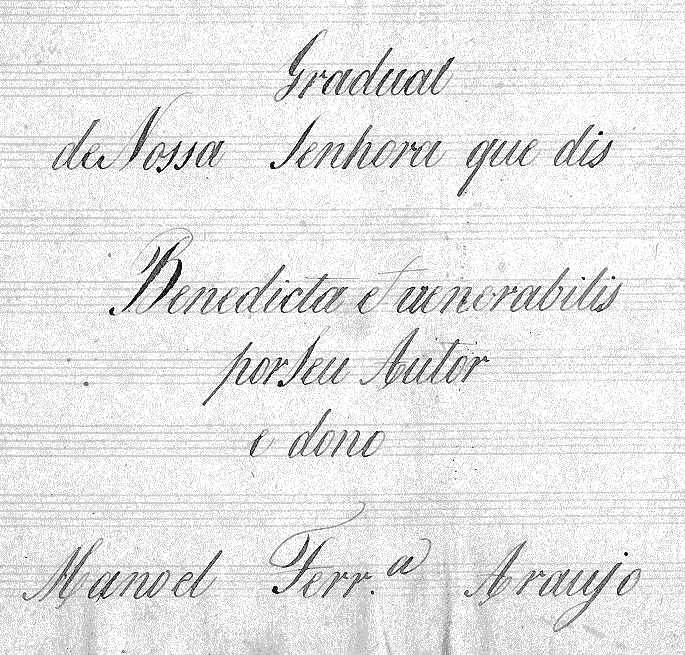 Gradual
de Nossa Senhora que dis
Benedicta et venerabilis
por seu Autor
e dono
Manoel Ferr.ª Araujo